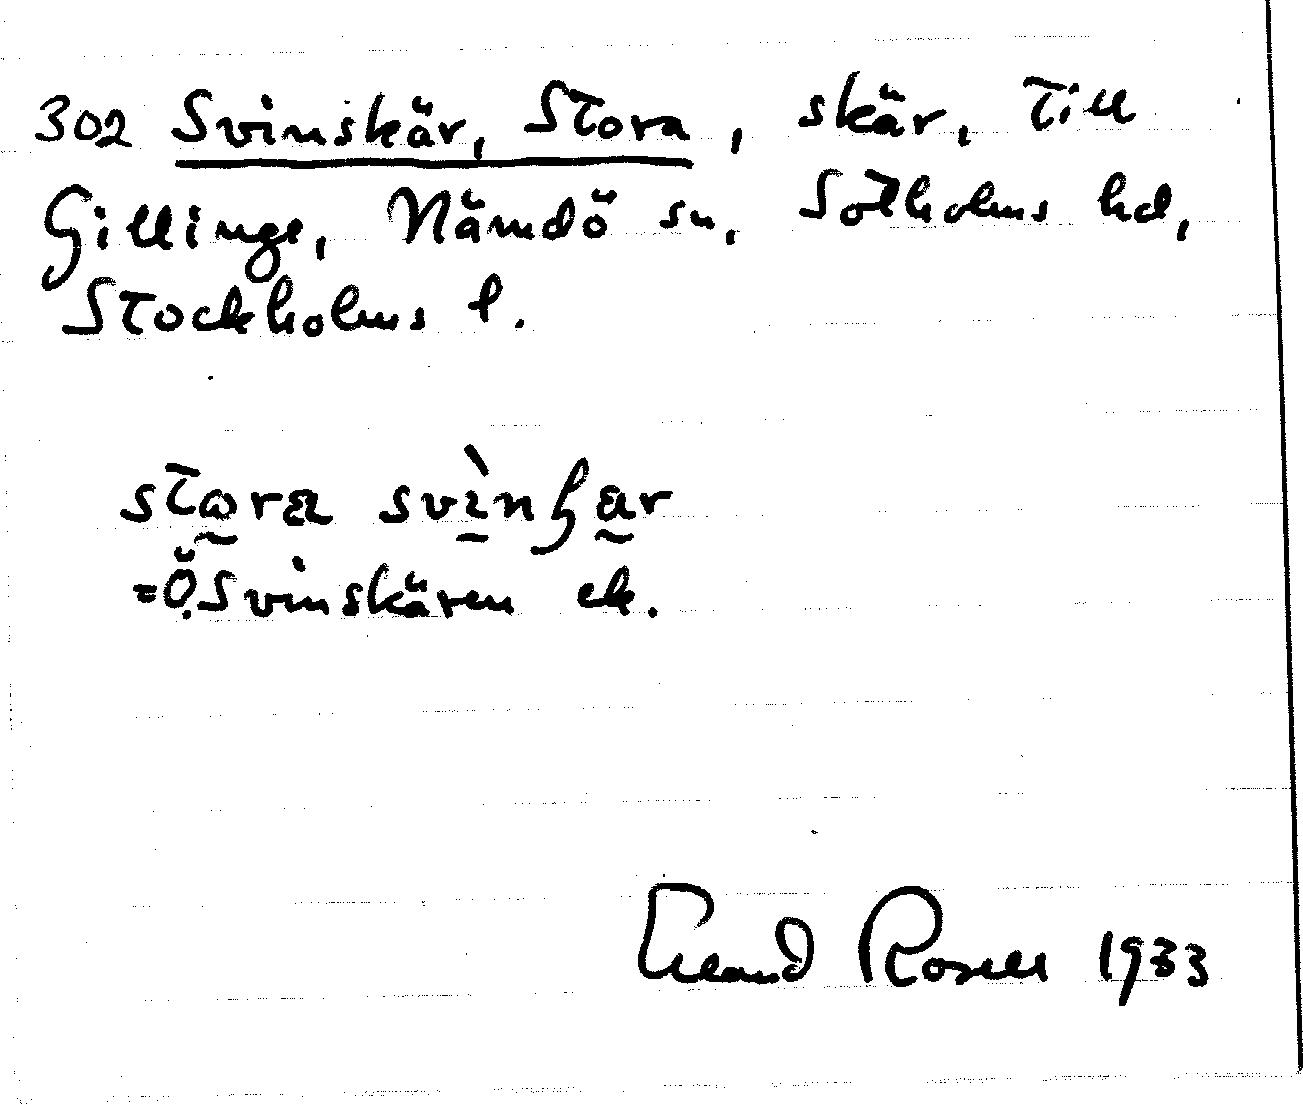 302 Svinskär, Stora, skär, till
Gillinge, Nämdö sn, Sotholms hd,
Stockholms l.
stɷra svìnʃar
=Ö. Svinskären ek.
Erland Rosell 1933